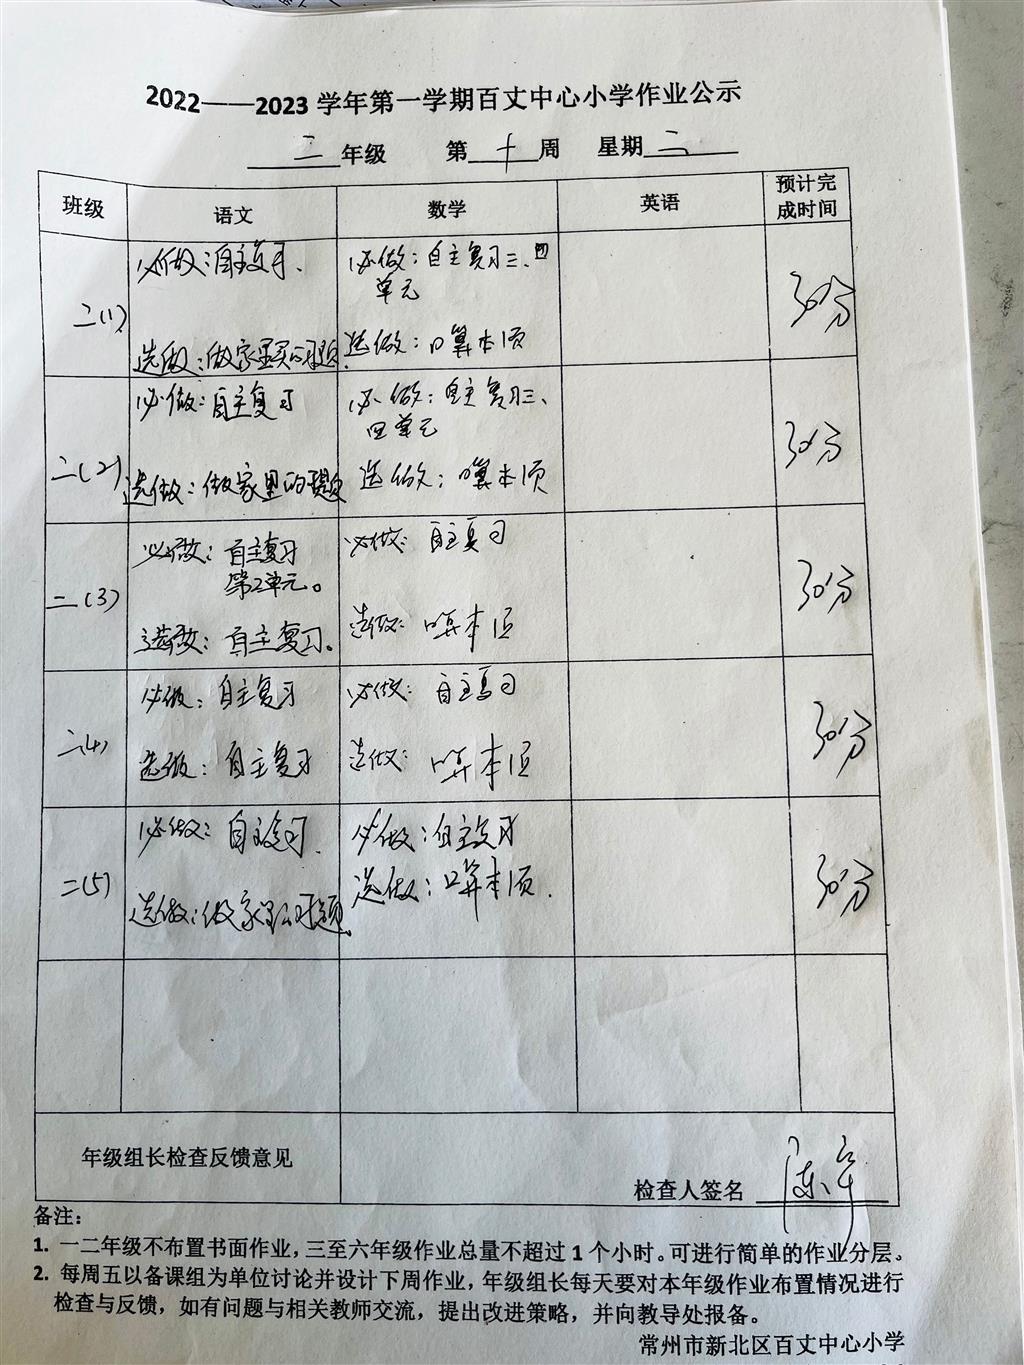 2022——2023 学年第一学期百丈中心小学作业公示
二 年级 第 十 周 星期 二
班级 语文 数学 英语 预计完成时间
二(1)
必做:自主复习.
选做:做家里买的习题.
必做:自主复习三、四
单元
选做:口算本1页
30分
二(2)
必做:自主复习
选做:做家里的习题
必做:自主复习三、
四单元
选做:口算本1页
30分
二(3)
必做:自主复习
第2单元。
选做:自主复习。
必做:自主复习
选做:口算本1页
30分
二(4)
必做:自主复习
选做:自主复习
必做:自主复习
选做:口算本1页
30分
二(5)
必做:自主复习.
选做:做家里的习题.
必做:自主复习
选做:口算本1页.
30分
年级组长检查反馈意见
检查人签名
备注:
1. 一二年级不布置书面作业,三至六年级作业总量不超过 1 个小时。可进行简单的作业分层。
2. 每周五以备课组为单位讨论并设计下周作业,年级组长每天要对本年级作业布置情况进行
检查与反馈,如有问题与相关教师交流,提出改进策略,并向教导处报备。
常州市新北区百丈中心小学